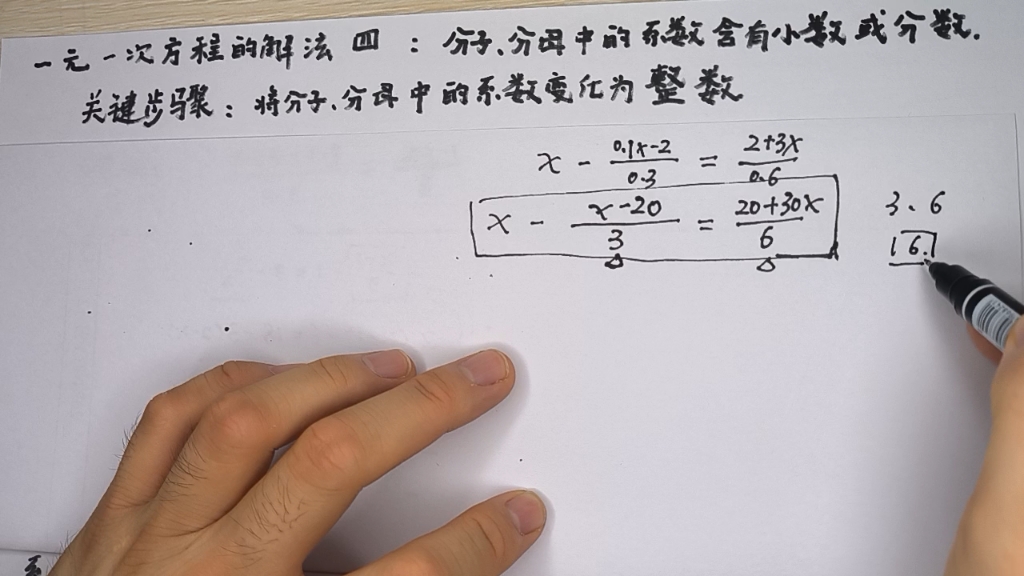 一元一次方程的解法四：分子、分母中的系数含有小数或分数.
关键步骤：将分子、分母中的系数变化为整数
x - (0.1x-2)/0.3 = (2+3x)/0.6
x - (x-20)/3 = (20+30x)/6
3. 6
6.